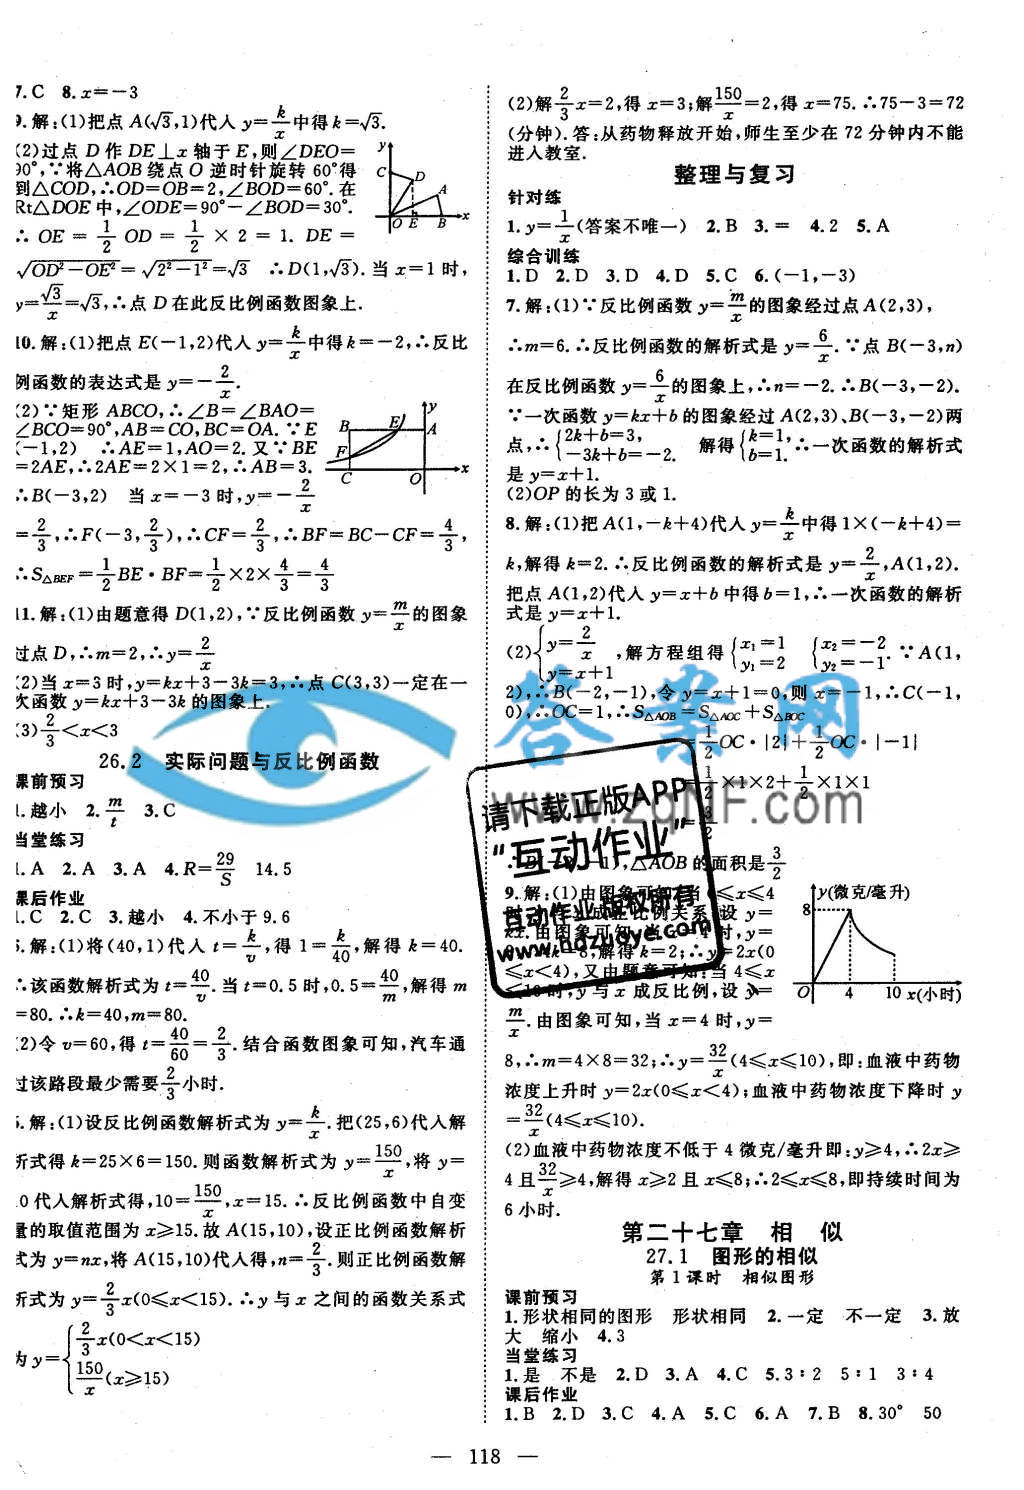 7.C 8.x=-3
9.解:(1)把点A(√3,1)代入y=k/x中得k=√3.
(2)过点D作DE⊥x轴于E,则∠DEO=
90°,∵将△AOB绕点O逆时针旋转60°得
到△COD,∴OD=OB=2,∠BOD=60°.在
Rt△DOE中,∠ODE=90°-∠BOD=30°.
∴OE=1/2 OD=1/2×2=1. DE=
√(OD²-OE²)=√(2²-1²)=√3 ∴D(1,√3).当x=1时,
y=√3/x=√3,∴点D在此反比例函数图象上.
y C D A O E B x
10.解:(1)把点E(-1,2)代入y=k/x中得k=-2,∴反比
例函数的表达式是y=-2/x.
(2)∵矩形ABCO,∴∠B=∠BAO=
∠BCO=90°,AB=CO,BC=OA.∵E
(-1,2) ∴AE=1,AO=2.又∵BE
=2AE,∴2AE=2×1=2,∴AB=3.
∴B(-3,2) 当x=-3时,y=-2/x
B E y A F C O x
=2/3,∴F(-3,2/3),∴CF=2/3,∴BF=BC-CF=4/3,
∴S△BEF=1/2BE·BF=1/2×2×4/3=4/3
11.解:(1)由题意得D(1,2),∵反比例函数y=m/x的图象
过点D,∴m=2,∴y=2/x
(2)当x=3时,y=kx+3-3k=3,∴点C(3,3)一定在一
次函数y=kx+3-3k的图象上.
(3)2/3<x<3
26.2 实际问题与反比例函数
课前预习
1.越小 2.m/t 3.C
当堂练习
1.A 2.A 3.A 4.R=29/S 14.5
课后作业
1.C 2.C 3.越小 4.不小于9.6
5.解:(1)将(40,1)代入t=k/v,得1=k/40,解得k=40.
∴该函数解析式为t=40/v.当t=0.5时,0.5=40/m,解得m
=80.∴k=40,m=80.
(2)令v=60,得t=40/60=2/3.结合函数图象可知,汽车通
过该路段最少需要2/3小时.
6.解:(1)设反比例函数解析式为y=k/x.把(25,6)代入解
析式得k=25×6=150.则函数解析式为y=150/x,将y=
10代入解析式得,10=150/x,x=15.∴反比例函数中自变
量的取值范围为x≥15.故A(15,10),设正比例函数解析
式为y=nx,将A(15,10)代入得,n=2/3.则正比例函数解
析式为y=2/3x(0≤x<15).∴y与x之间的函数关系式
为y={2/3x(0<x<15)
150/x(x≥15)
(2)解2/3x=2,得x=3;解150/x=2,得x=75.∴75-3=72
(分钟).答:从药物释放开始,师生至少在72分钟内不能
进入教室.
整理与复习
针对练
1.y=1/x(答案不唯一) 2.B 3.= 4.2 5.A
综合训练
1.D 2.D 3.D 4.D 5.C 6.(-1,-3)
7.解:(1)∵反比例函数y=m/x的图象经过点A(2,3),
∴m=6.∴反比例函数的解析式是y=6/x.∵点B(-3,n)
在反比例函数y=6/x的图象上,∴n=-2.∴B(-3,-2).
∵一次函数y=kx+b的图象经过A(2,3)、B(-3,-2)两
点,∴{2k+b=3, -3k+b=-2. 解得{k=1, b=1. ∴一次函数的解析式
是y=x+1.
(2)OP的长为3或1.
8.解:(1)把A(1,-k+4)代入y=k/x中得1×(-k+4)=
k,解得k=2.∴反比例函数的解析式是y=2/x,A(1,2).
把点A(1,2)代入y=x+b中得b=1,∴一次函数的解析
式是y=x+1.
(2){y=2/x y=x+1,解方程组得{x₁=1 y₁=2 {x₂=-2 y₂=-1.∵A(1,
2),∴B(-2,-1),令y=x+1=0,则x=-1,∴C(-1,
0),∴OC=1,∴S△AOB=S△AOC+S△BOC
=1/2OC·|2|+1/2OC·|-1|
=1/2×1×2+1/2×1×1
=3/2
∴B(-2,-1),△AOB的面积是3/2
9.解:(1)由图象可知,当0≤x≤4
成正比例关系,设y=
kx.由图象可知,当x=4时,y=
8,∴4k=8,解得k=2;∴y=2x(0
≤x<4),又由题意可知:当4≤x
≤10时,y与x成反比例,设y=
m/x.由图象可知,当x=4时,y=
y(微克/毫升) 8 O 4 10 x(小时)
8,∴m=4×8=32;∴y=32/x(4≤x≤10),即:血液中药物
浓度上升时y=2x(0≤x<4);血液中药物浓度下降时y
=32/x(4≤x≤10).
(2)血液中药物浓度不低于4微克/毫升即:y≥4,∴2x≥
4且32/x≥4,解得x≥2且x≤8;∴2≤x≤8,即持续时间为
6小时.
第二十七章 相 似
27.1 图形的相似
第1课时 相似图形
课前预习
1.形状相同的图形 形状相同 2.一定 不一定 3.放
大 缩小 4.3
当堂练习
1.是 不是 2.D 3.A 4.C 5.3:2 5:1 3:4
课后作业
1.B 2.D 3.C 4.A 5.C 6.A 7.B 8.30° 50
— 118 —
答案网
www.zqNF.com
请下载正版APP
“互动作业”
互动作业 版权所有
www.hdzuoye.com